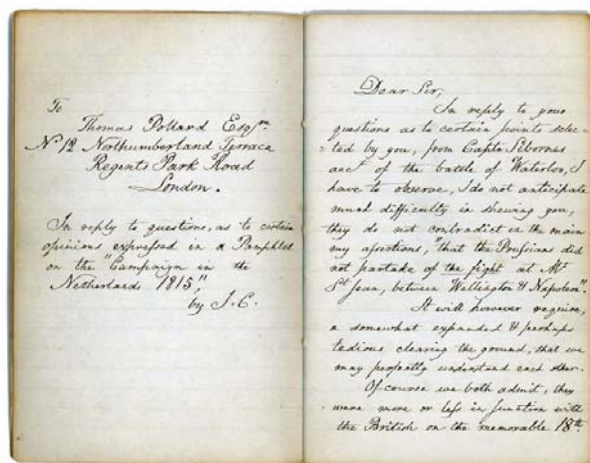 To
Thomas Pollard Esqre
No 12 Northumberland Terrace
Regents Park Road
London.
In reply to questions, as to certain
opinions expressed in a Pamphlet
on the "Campaign in the
Netherlands 1815",
by J. C.
Dear Sir,
In reply to your
questions as to certain points selec=
=ted by you, from Captn Sibornes
acct of the battle of Waterloo, I
have to observe, I do not anticipate
much difficulty in shewing you,
they do not contradict in the main
my assertions, "that the Prussians did
not partake of the fight at Mt
St Jean, between Wellington & Napoleon".
It will however require,
a somewhat expanded & perhaps
tedious clearing the ground, that we
may perfectly understand each other.
Of course we both admit, they
were more or less in junction with
the British on the memorable 18th